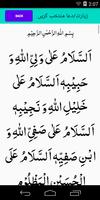 2:07
زیارت/دعا منتخب کریں
back
بِسْمِ اللّٰهِ الرَّحْمٰنِ الرَّحِيْمِ
اَلسَّلَامُ عَلٰى وَلِيِّ اللّٰهِ وَ
حَبِيْبِهِ اَلسَّلَامُ عَلٰى
خَلِيْلِ اللّٰهِ وَ نَجِيْبِهِ
اَلسَّلَامُ عَلٰى صَفِيِّ اللّٰهِ وَ
ابْنِ صَفِيِّهِ اَلسَّلَامُ عَلَى